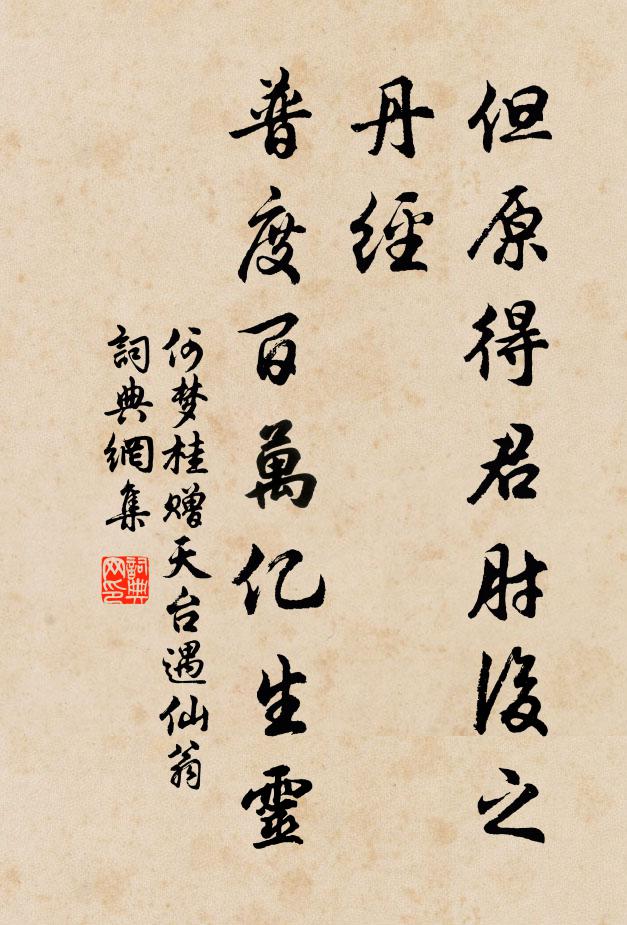 但原得君肘後之
丹經
普度百萬亿生靈
何梦桂赠天台遇仙翁
詞典網集
詞典
网印